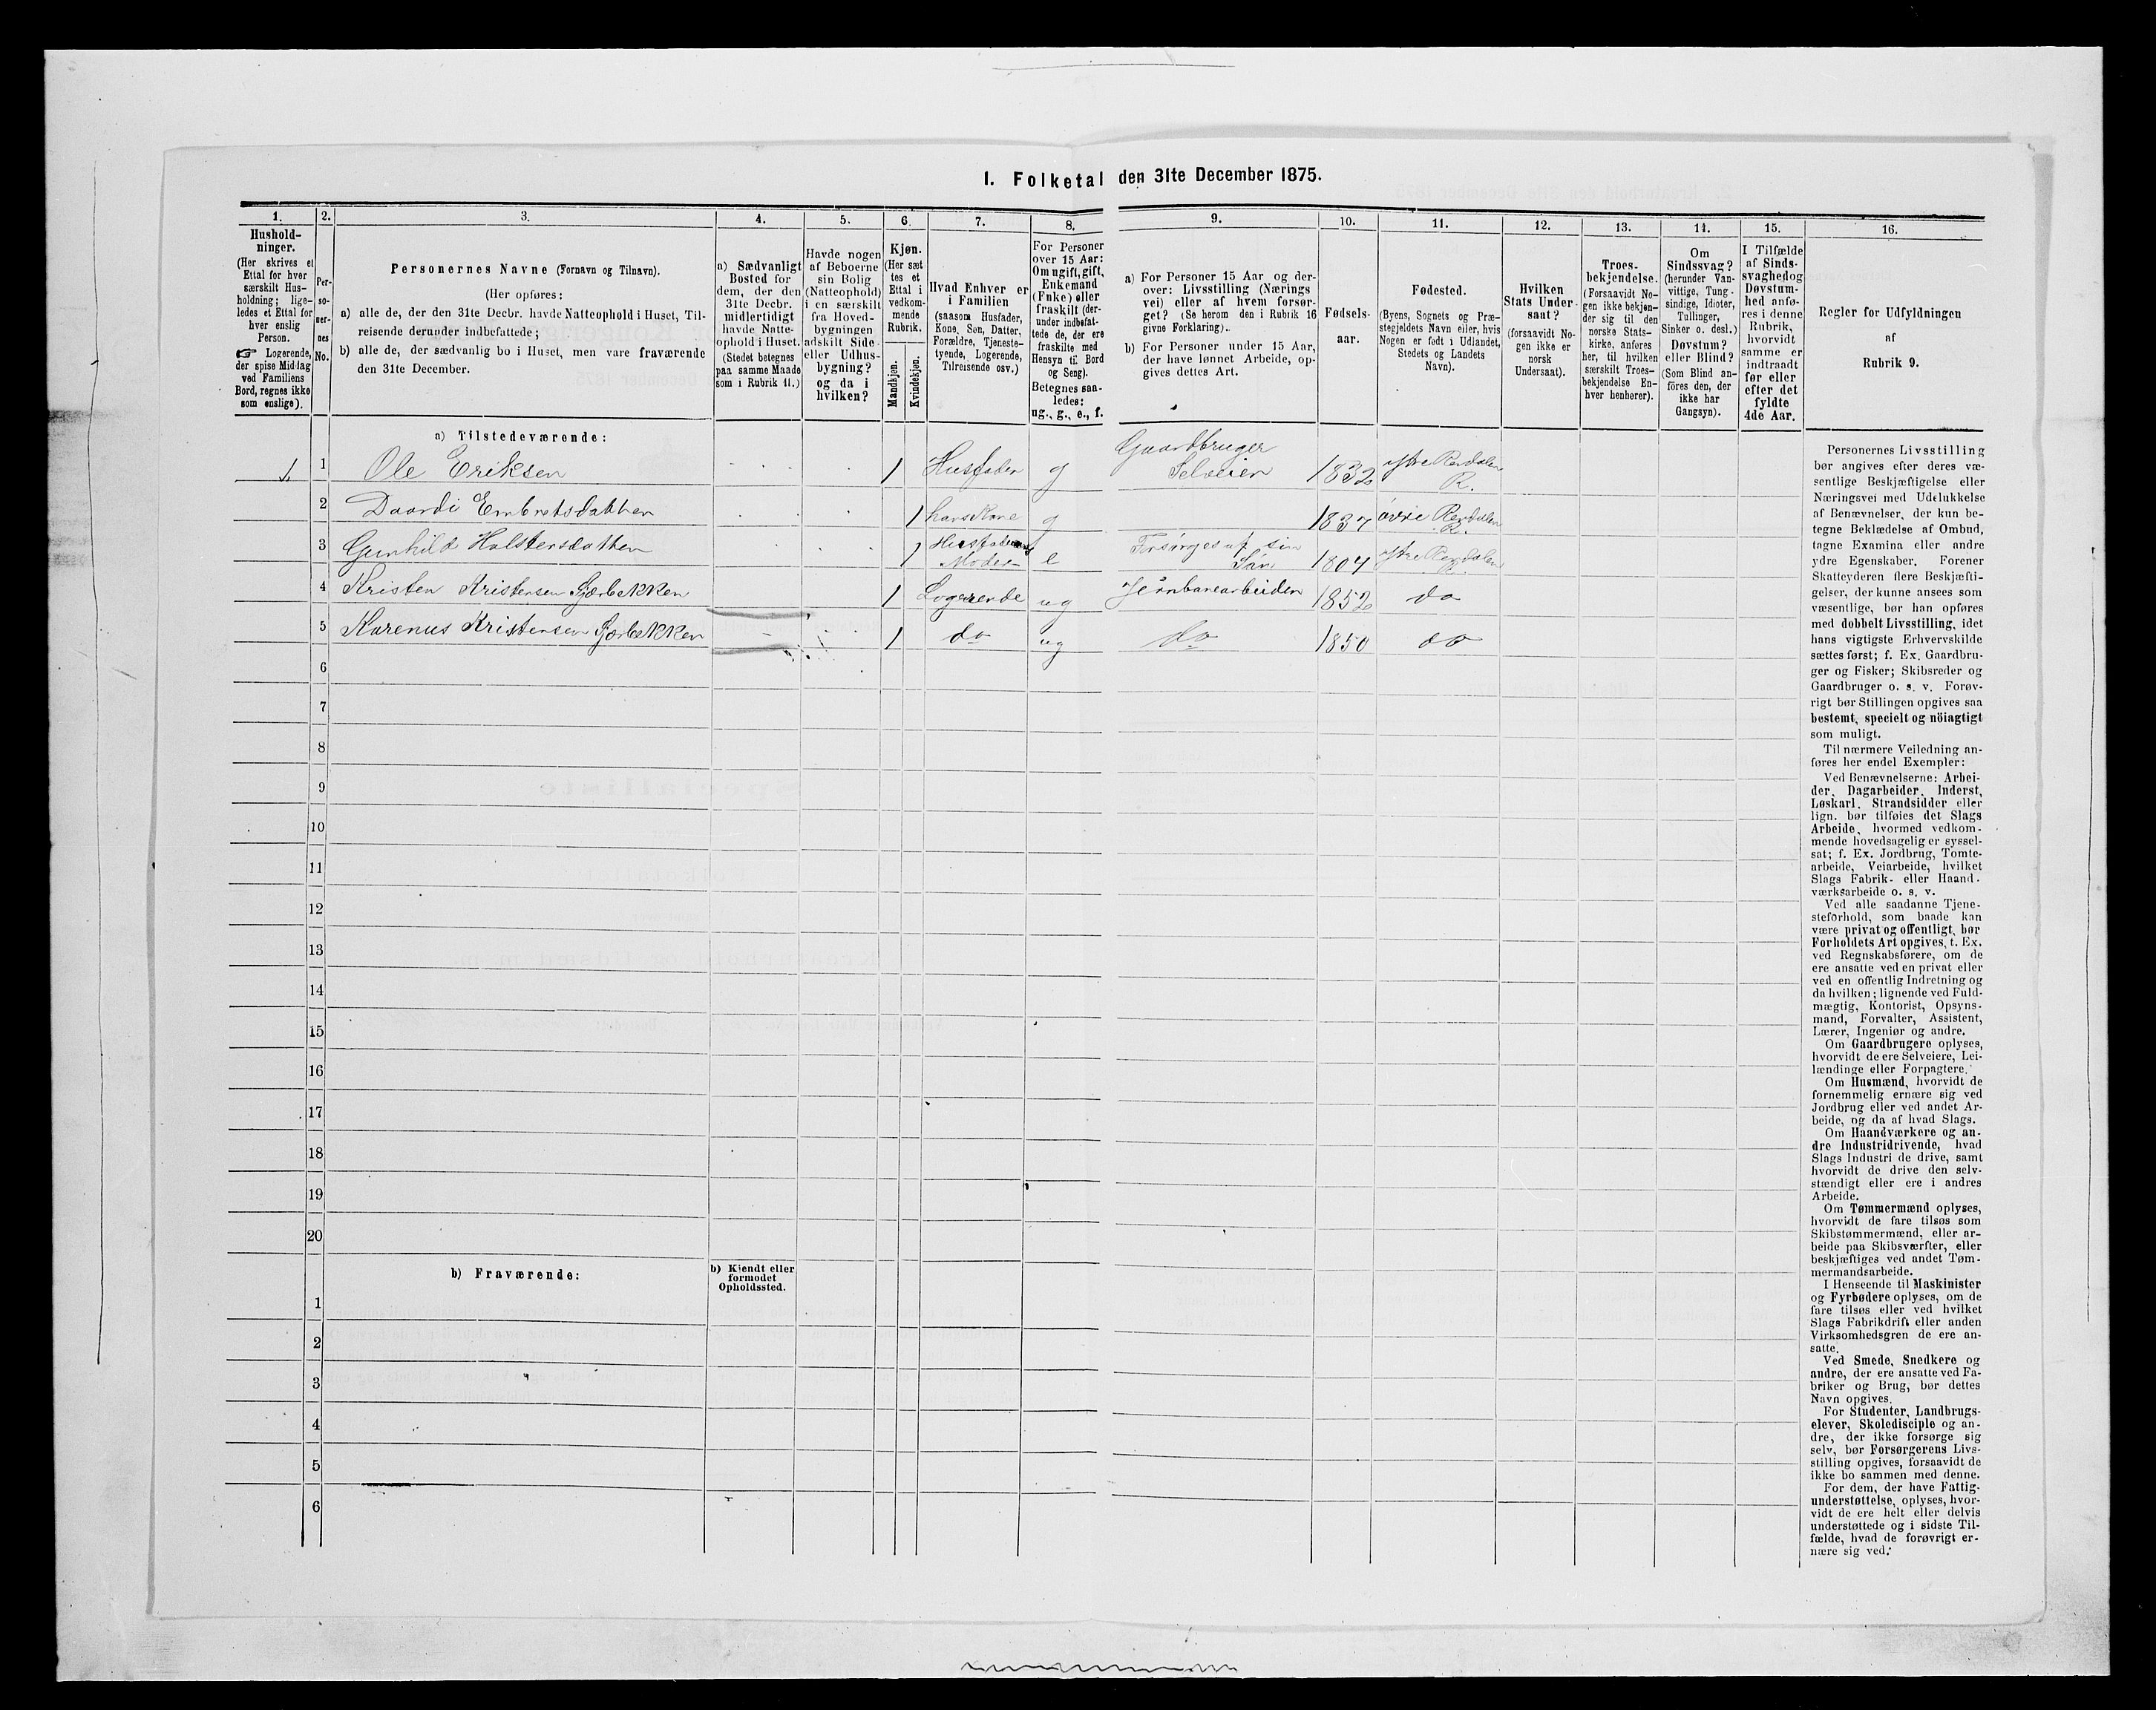 I. Folketal den 31te December 1875.
1. 2. 3. 4. 5. 6. 7. 8. 9. 10. 11. 12. 13. 14. 15. 16.
Hushold-
ninger.
(Her skrives et
Ettal for hver
særskilt Hus-
holdning; lige-
ledes et Ettal for
hver enslig
Person.
☞ Logerende,
der spise Middag
ved Familiens
Bord, regnes ikke
som enslige).
Per-
so-
ner-
nes
No.
Personernes Navne (Fornavn og Tilnavn).
(Her opføres:
a) alle de, der den 31te Decbr. havde Natteophold i Huset, Til-
reisende derunder indbefattede;
b) alle de, der sædvanlig bo i Huset, men vare fraværende
den 31te December.
a) Sædvanligt
Bosted for
dem, der den
31te Decbr.
midlertidigt
havde Natte-
ophold i Huset.
(Stedet betegnes
paa samme Maade
som i Rubrik 11.)
Havde nogen
af Beboerne
sin Bolig
(Natteophold)
i en særskilt
fra Hoved-
bygningen
adskilt Side-
eller Udhus-
bygning?
og da i
hvilken?
Kjøn.
(Her sæt
tes et
Ettal i
vedkom-
mende
Rubrik.
Mandkjøn.
Kvindekjøn.
Hvad Enhver er
i Familien
(saasom Husfader,
Kone, Søn, Datter,
Forældre, Tjeneste-
tyende, Logerende,
Tilreisende osv.)
For Personer
over 15 Aar:
Om ugift, gift,
Enkemand
(Enke) eller
fraskilt (der-
under indbefat-
tede de, der ere
fraskilte med
Hensyn til Bord
og Seng).
Betegnes saa-
ledes:
ug., g., e., f.
a) For Personer 15 Aar og der-
over: Livsstilling (Nærings
vei) eller af hvem forsør-
get? (Se herom den i Rubrik 16
givne Forklaring).
b) For Personer under 15 Aar,
der have lønnet Arbeide, op-
gives dettes Art.
Fødsels-
aar.
Fødested.
(Byens, Sognets og Præ-
stegjeldets Navn eller, hvis
Nogen er født i Udlandet,
Stedets og Landets
Navn).
Hvilken
Stats Under-
saat?
(forsaavidt No-
gen ikke er
norsk
Undersaat).
Troes-
bekjendelse.
(Forsaavidt No-
gen ikke bekjen-
der sig til den
norske Stats-
kirke, anføres
her, til hvilken
særskilt Troes-
bekjendelse En-
hver henhører).
Om
Sindssvag?
(herunder Van-
vittige, Tung-
sindige, Idioter,
Tullinger,
Sinker o. desl.)
Døvstum?
eller Blind?
(Som Blind an-
føres den, der
ikke har
Gangsyn).
I Tilfælde
af Sinds-
svaghed og
Døvstum-
hed anfø-
res i denne
Rubrik,
hvorvidt
samme er
indtraadt
før eller
efter det
fyldte
4de Aar.
Regler for Udfyldningen
af
Rubrik 9.
a) Tilstedeværende:
1 1 Ole Eriksen 1 Husfader g Gaardbruger Selveier 1832 Ytre Rendalen R.
2 Daardi Embretsdatter 1 hans Kone g 1837 øvre Rendalen R.
3 Gunhild Halstensdatter 1 Husfaderens Moder e Forsørges af sin Søn 1804 Ytre Rendalen R.
4 Kristen Kristensen Sjærbekken 1 Logerende ug Jernbanearbeider 1852 do
5 Karenus Kristensen Sjærbekken 1 do ug do 1850 do
6
7
8
9
10
11
12
13
14
15
16
17
18
19
20
b) Fraværende:
b) Kjendt eller
formodet
Opholdssted.
1
2
3
4
5
6
Personernes Livsstilling
bør angives efter deres væ-
sentlige Beskjæftigelse eller
Næringsvei med Udelukkelse
af Benævnelser, der kun be-
tegne Beklædelse af Ombud,
tagne Examina eller andre
ydre Egenskaber. Forener
Skatteyderen flere Beskjæfti-
gelser, der kunne ansees som
væsentlige, bør han opføres
med dobbelt Livsstilling, idet
hans vigtigste Erhvervskilde
sættes først; f. Ex. Gaardbru-
ger og Fisker; Skibsreder og
Gaardbruger o. s. v. Forøv-
rigt bør Stillingen opgives saa
bestemt, specielt og nöiagtigt
som muligt.
Til nærmere Veiledning an-
føres her endel Exempler:
Ved Benævnelserne: Arbei-
der, Dagarbeider, Inderst,
Løskarl, Strandsidder eller
lign. bør tilføies det Slags
Arbeide, hvormed vedkom-
mende hovedsagelig er syssel-
sat; f. Ex. Jordbrug, Tomte-
arbeide, Veiarbeide, hvilket
Slags Fabrik- eller Haand-
værksarbeide o. s. v.
Ved alle saadanne Tjene-
steforhold, som baade kan
være privat og offentligt, bør
Forholdets Art opgives, t. Ex.
ved Regnskabsførere, om de
ere ansatte ved en privat eller
ved en offentlig Indretning og
da hvilken; lignende ved Fuld-
mægtig, Kontorist, Opsyns-
mand, Forvalter, Assistent,
Lærer, Ingeniør og andre.
Om Gaardbrugere oplyses,
hvorvidt de ere Selveiere, Lei-
lændinge eller Forpagtere.
Om Husmænd, hvorvidt de
fornemmelig ernære sig ved
Jordbrug eller ved andet Ar-
beide, og da af hvad Slags.
Om Haandværkere og an-
dre Industridrivende, hvad
Slags Industri de drive, samt
hvorvidt de drive den selv-
stændigt eller ere i andres
Arbeide.
Om Tømmermænd oplyses,
hvorvidt de fare tilsøs som
Skibstømmermænd, eller ar-
beide paa Skibsværfter, eller
beskjæftiges ved andet Tøm-
mermandsarbeide.
I Henseende til Maskinister
og Fyrbødere oplyses, om de
fare tilsøs eller ved hvilket
Slags Fabrikdrift eller anden
Virksomhedsgren de ere an-
satte.
Ved Smede, Snedkere og
andre, der ere ansatte ved Fa-
briker og Brug, bør dettes
Navn opgives.
For Studenter, Landbrugs-
elever, Skoledisciple og an-
dre, der ikke forsørge sig
selv, bør Forsørgerens Livs-
stilling opgives, forsaavidt de
ikke bo sammen med denne.
For dem, der have Fattig-
understøttelse, oplyses, hvor-
vidt de ere helt eller delvis
understøttede og i sidste Til-
fælde, hvad de forøvrigt er-
nære sig ved.